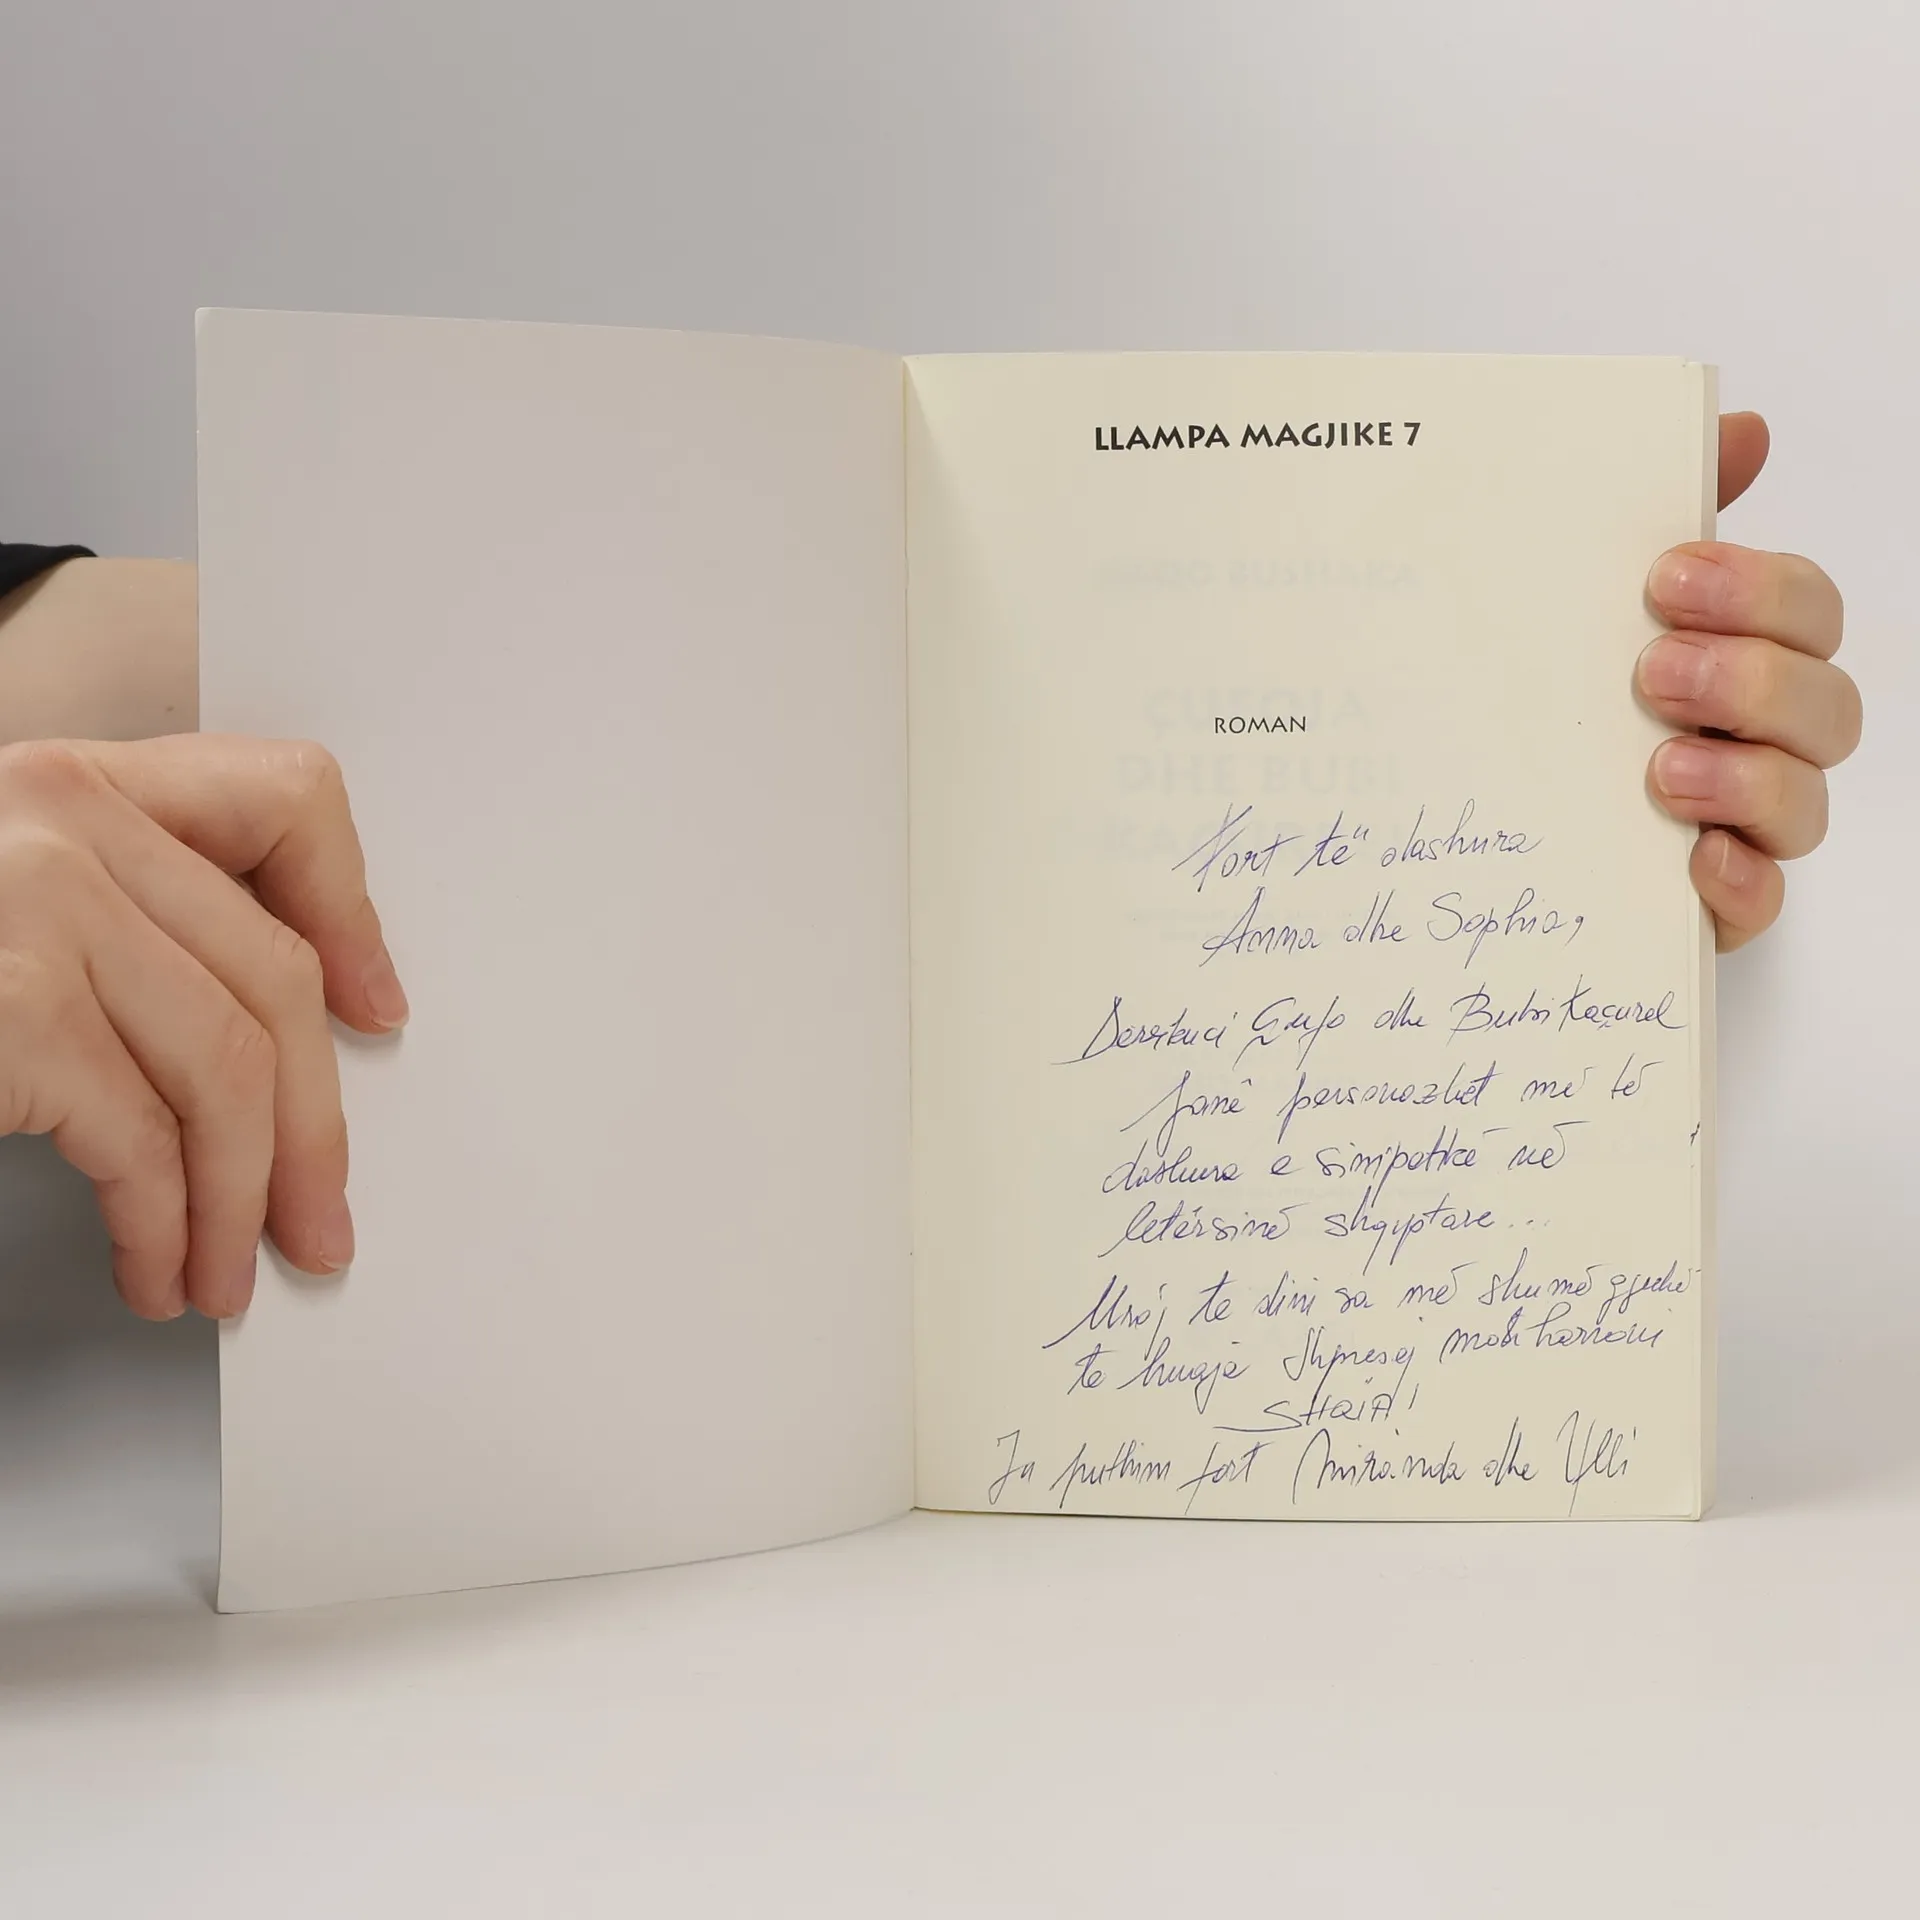 LLAMPA MAGJIKE 7
ROMAN
Fort të dashura
Anna dhe Sophia,
Derrkuci Çufo dhe Bubi Kaçurel
Janë personazhet më të
dashura e simpatikë në
letërsinë shqiptare...
Uroj te dini sa më shumë gjuhë
te huaja Shpresoj mos harroni
SHQIP!
Ju puthim fort Miranda dhe Ylli